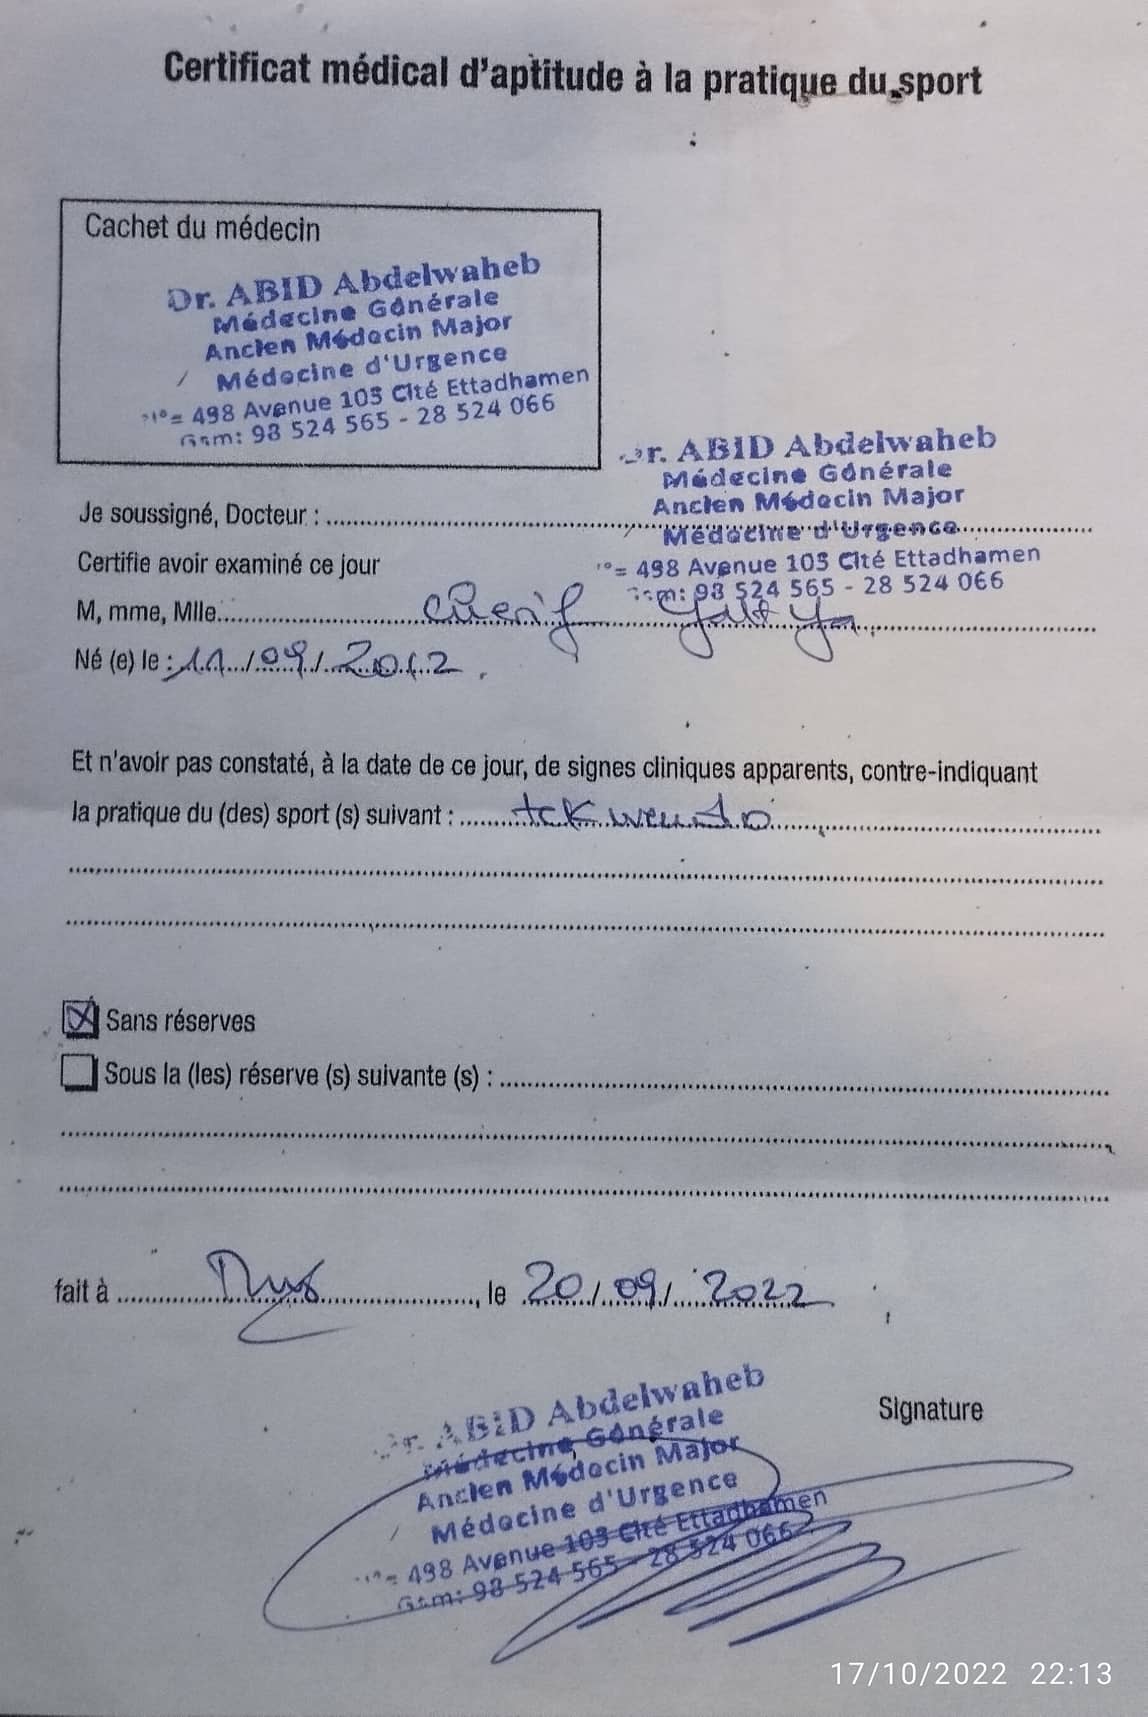 Certificat médical d'aptitude à la pratique du sport
Cachet du médecin
Dr. ABID Abdelwaheb
Médecine Générale
Ancien Médecin Major
Médecine d'Urgence
N°= 498 Avenue 103 Cité Ettadhamen
Gsm: 98 524 565 - 28 524 066
Dr. ABID Abdelwaheb
Médecine Générale
Ancien Médecin Major
Je soussigné, Docteur :
Médecine d'Urgence
Certifie avoir examiné ce jour
N°= 498 Avenue 103 Cité Ettadhamen
Gsm: 98 524 565 - 28 524 066
M, mme, Mlle cherif
Né (e) le : 11/09/2012
Et n'avoir pas constaté, à la date de ce jour, de signes cliniques apparents, contre-indiquant
la pratique du (des) sport (s) suivant : tekwendo
Sans réserves
Sous la (les) réserve (s) suivante (s) :
fait à Tunis, le 20/09/2022
Signature
Dr. ABID Abdelwaheb
Médecine Générale
Ancien Médecin Major
Médecine d'Urgence
N°= 498 Avenue 103 Cité Ettadhamen
Gsm: 98 524 565 - 28 524 066
17/10/2022 22:13